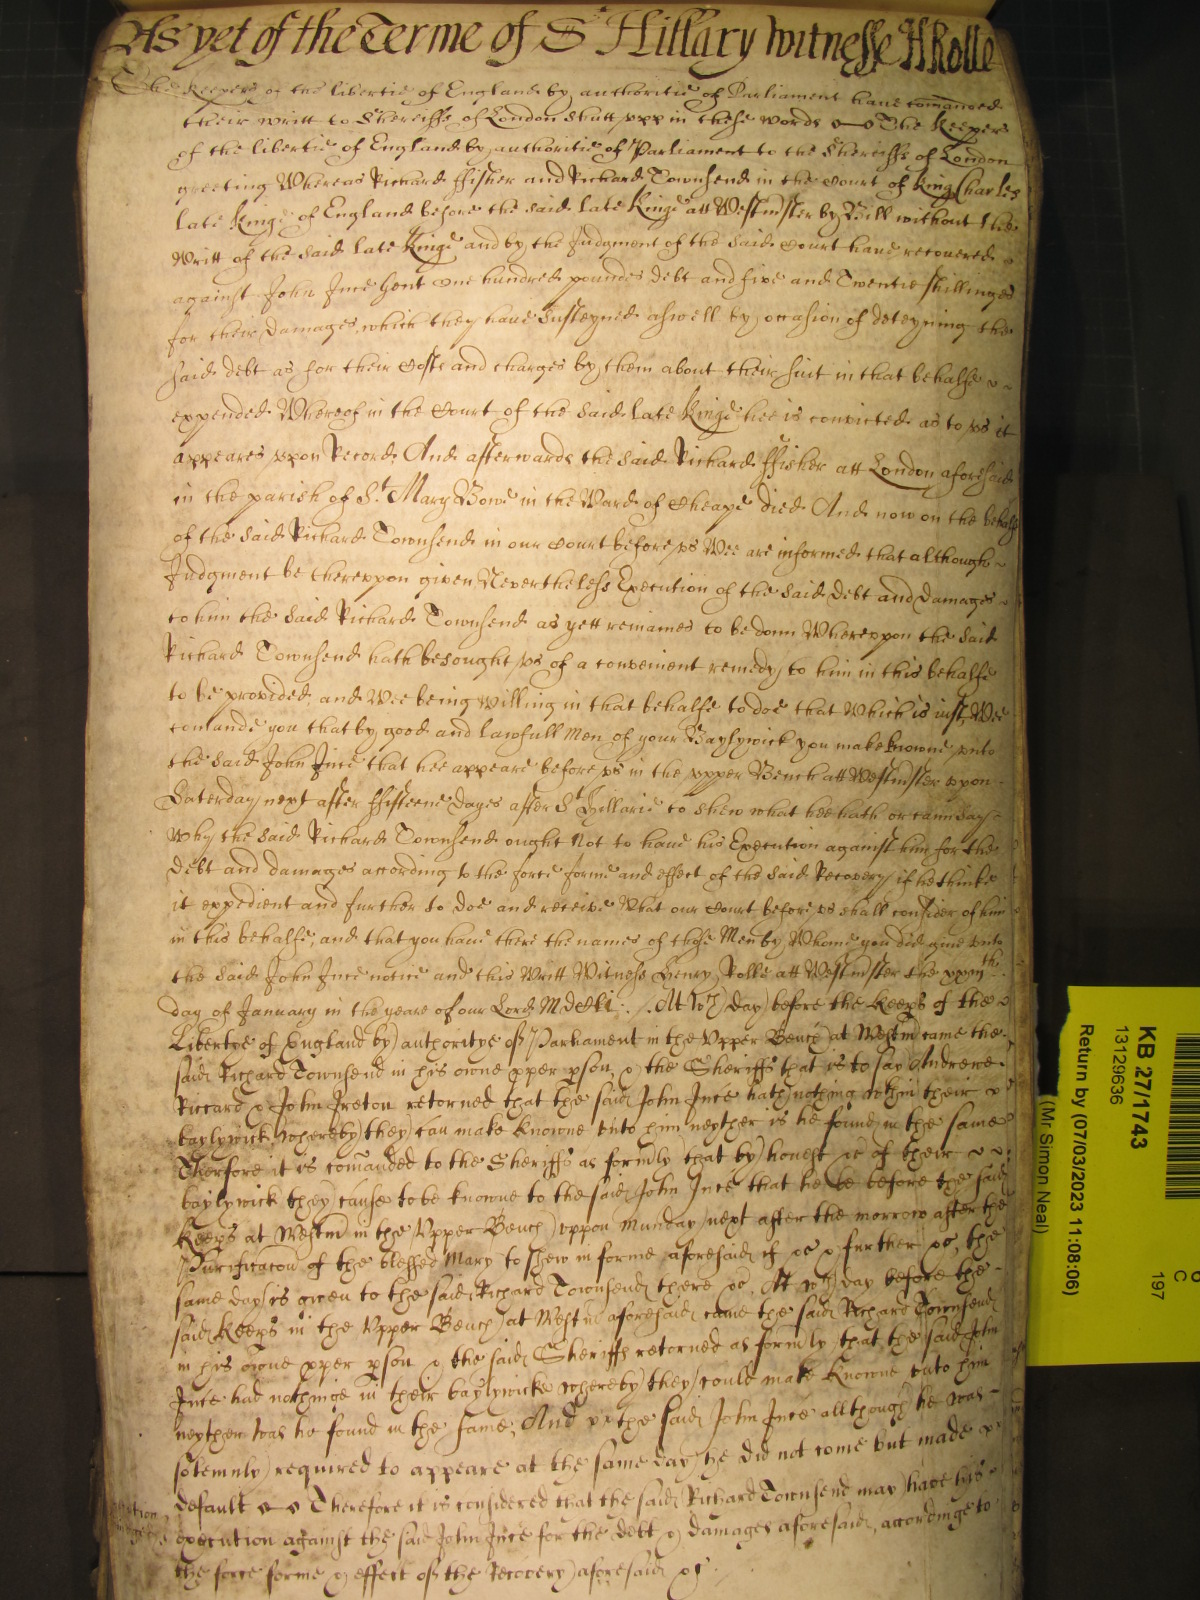 As yet of the Terme of St Hillary Witnesse H Rolle
The Keepers of the libertie of England by authoritie of Parliament have comanded
their writt to Shereiffs of London shutt upp in these words The Keepers
of the libertie of England by authoritie of Parliament to the Sheriffs of London
greeting Whereas Richard ffisher and Richard Townsend in the Court of King Charles
late Kinge of England before the said late Kinge att Westmster by Bill without the
Writt of the said late Kinge and by the Judgment of the said Court have recovered
against John Ince Gent One hundred poundes debt and five and Twentie shillinges
for their damages which they have susteyned aswell by occasion of deteyning the
said debt as for their Costs and charges by them about their suit in that behalfe
expended Whereof in the Court of the said late Kinge hee is convicted as to us it
appeares upon Record And afterwards the said Richard ffisher att London aforesaid
in the parish of St Mary Bowe in the Ward of Cheape died And now on the behalfe
of the said Richard Townsend in our Court before us Wee are informed that although
Judgment be thereuppon given Nevertheless Execution of the said debt and damages
to him the said Richard Townsend as yett remaines to be donn Whereuppon the said
Richard Townsend hath besought us of a convenient remedy to him in this behalfe
to be provided and Wee being willing in that behalfe to doe that Which is iust Wee
comande you that by good and lawfull Men of your Baylywick you make knowne unto
the said John Ince that hee appeare before us in the upper Bench att Westmster upon
Saterday next after ffifteene dayes after St Hillarie to shew what hee hath or cann say
Why the said Richard Townsend ought Not to have his Execution against him for the
debt and damages according to the force forme and effect of the said Recovery if he thinke
it expedient and further to doe and receive What our Court before us shall consider of him
in this behalfe, and that you have there the names of those Men by Whome you did give unto
the said John Ince notice and this Writt Witness Henry Rolle att Westmster the xxiiith
day of January in the yeare of our Lord MdCLi : . At wch day before the Keeps of the
Libertye of England by authoritye of Parliament in the Upper Bench at Westm came the
said Richard Townsend in his owne pper pson, & the Sheriffs that is to say Andrewe
Riccard & John Ireton retorned that the said John Ince hath nothing within their
baylywick whereby they can make knowne unto him neyther is he found in the same
Therfore it is comanded to the Sheriffs as formly that by honest &c of their
baylywick they cause to be knowne to the said John Ince that he be before the said
Keeps at Westm in the Upper Bench uppon Munday next after the morrow after the
Purificacon of the blessed Mary to shew in forme aforesaid if &c & further &c, the
same day is given to the said Richard Townsend there &c. At wch day before the
said Keeps in the Upper Bench at Westm aforesaid came the said Richard Townsend
in his owne pper pson & the said Sheriffs retorned as formly that the said John
Ince had nothinge in their baylywicke whereby they could make knowne unto him
neyther was he found in the same, And the said John Ince allthough he was
solemnly required to appeare at the same day he did not come but made
default Therefore it is considered that the said Richard Townsend may have his
execution against the said John Ince for the debt & damages aforesaid, accordinge to
the force forme & effect of the Recovery aforesaid &c
KB 27/1743
13129636
Return by (07/03/2023 11:08:06)
(Mr Simon Neal)
C
197